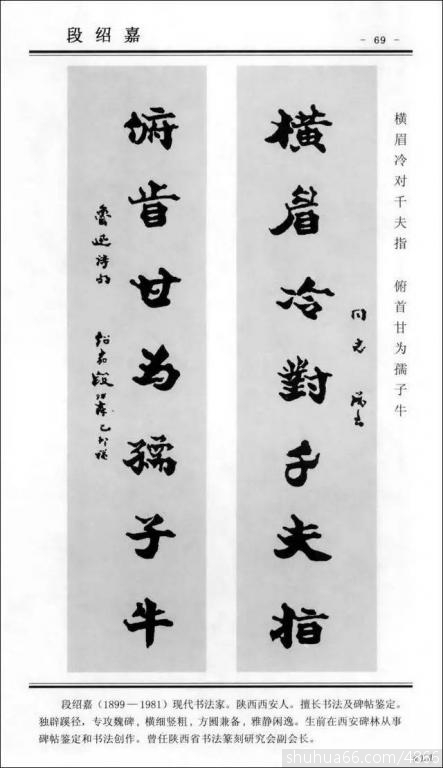 段绍嘉
- 69 -
横眉冷对千夫指 俯首甘为孺子牛
同志
橫眉冷對千夫指
俯首甘为孺子牛
鲁迅诗句
段绍嘉(1899—1981)现代书法家。陕西西安人。擅长书法及碑帖鉴定。
独辟蹊径,专攻魏碑,横细竖粗,方圆兼备,雅静闲逸。生前在西安碑林从事
碑帖鉴定和书法创作。曾任陕西省书法篆刻研究会副会长。